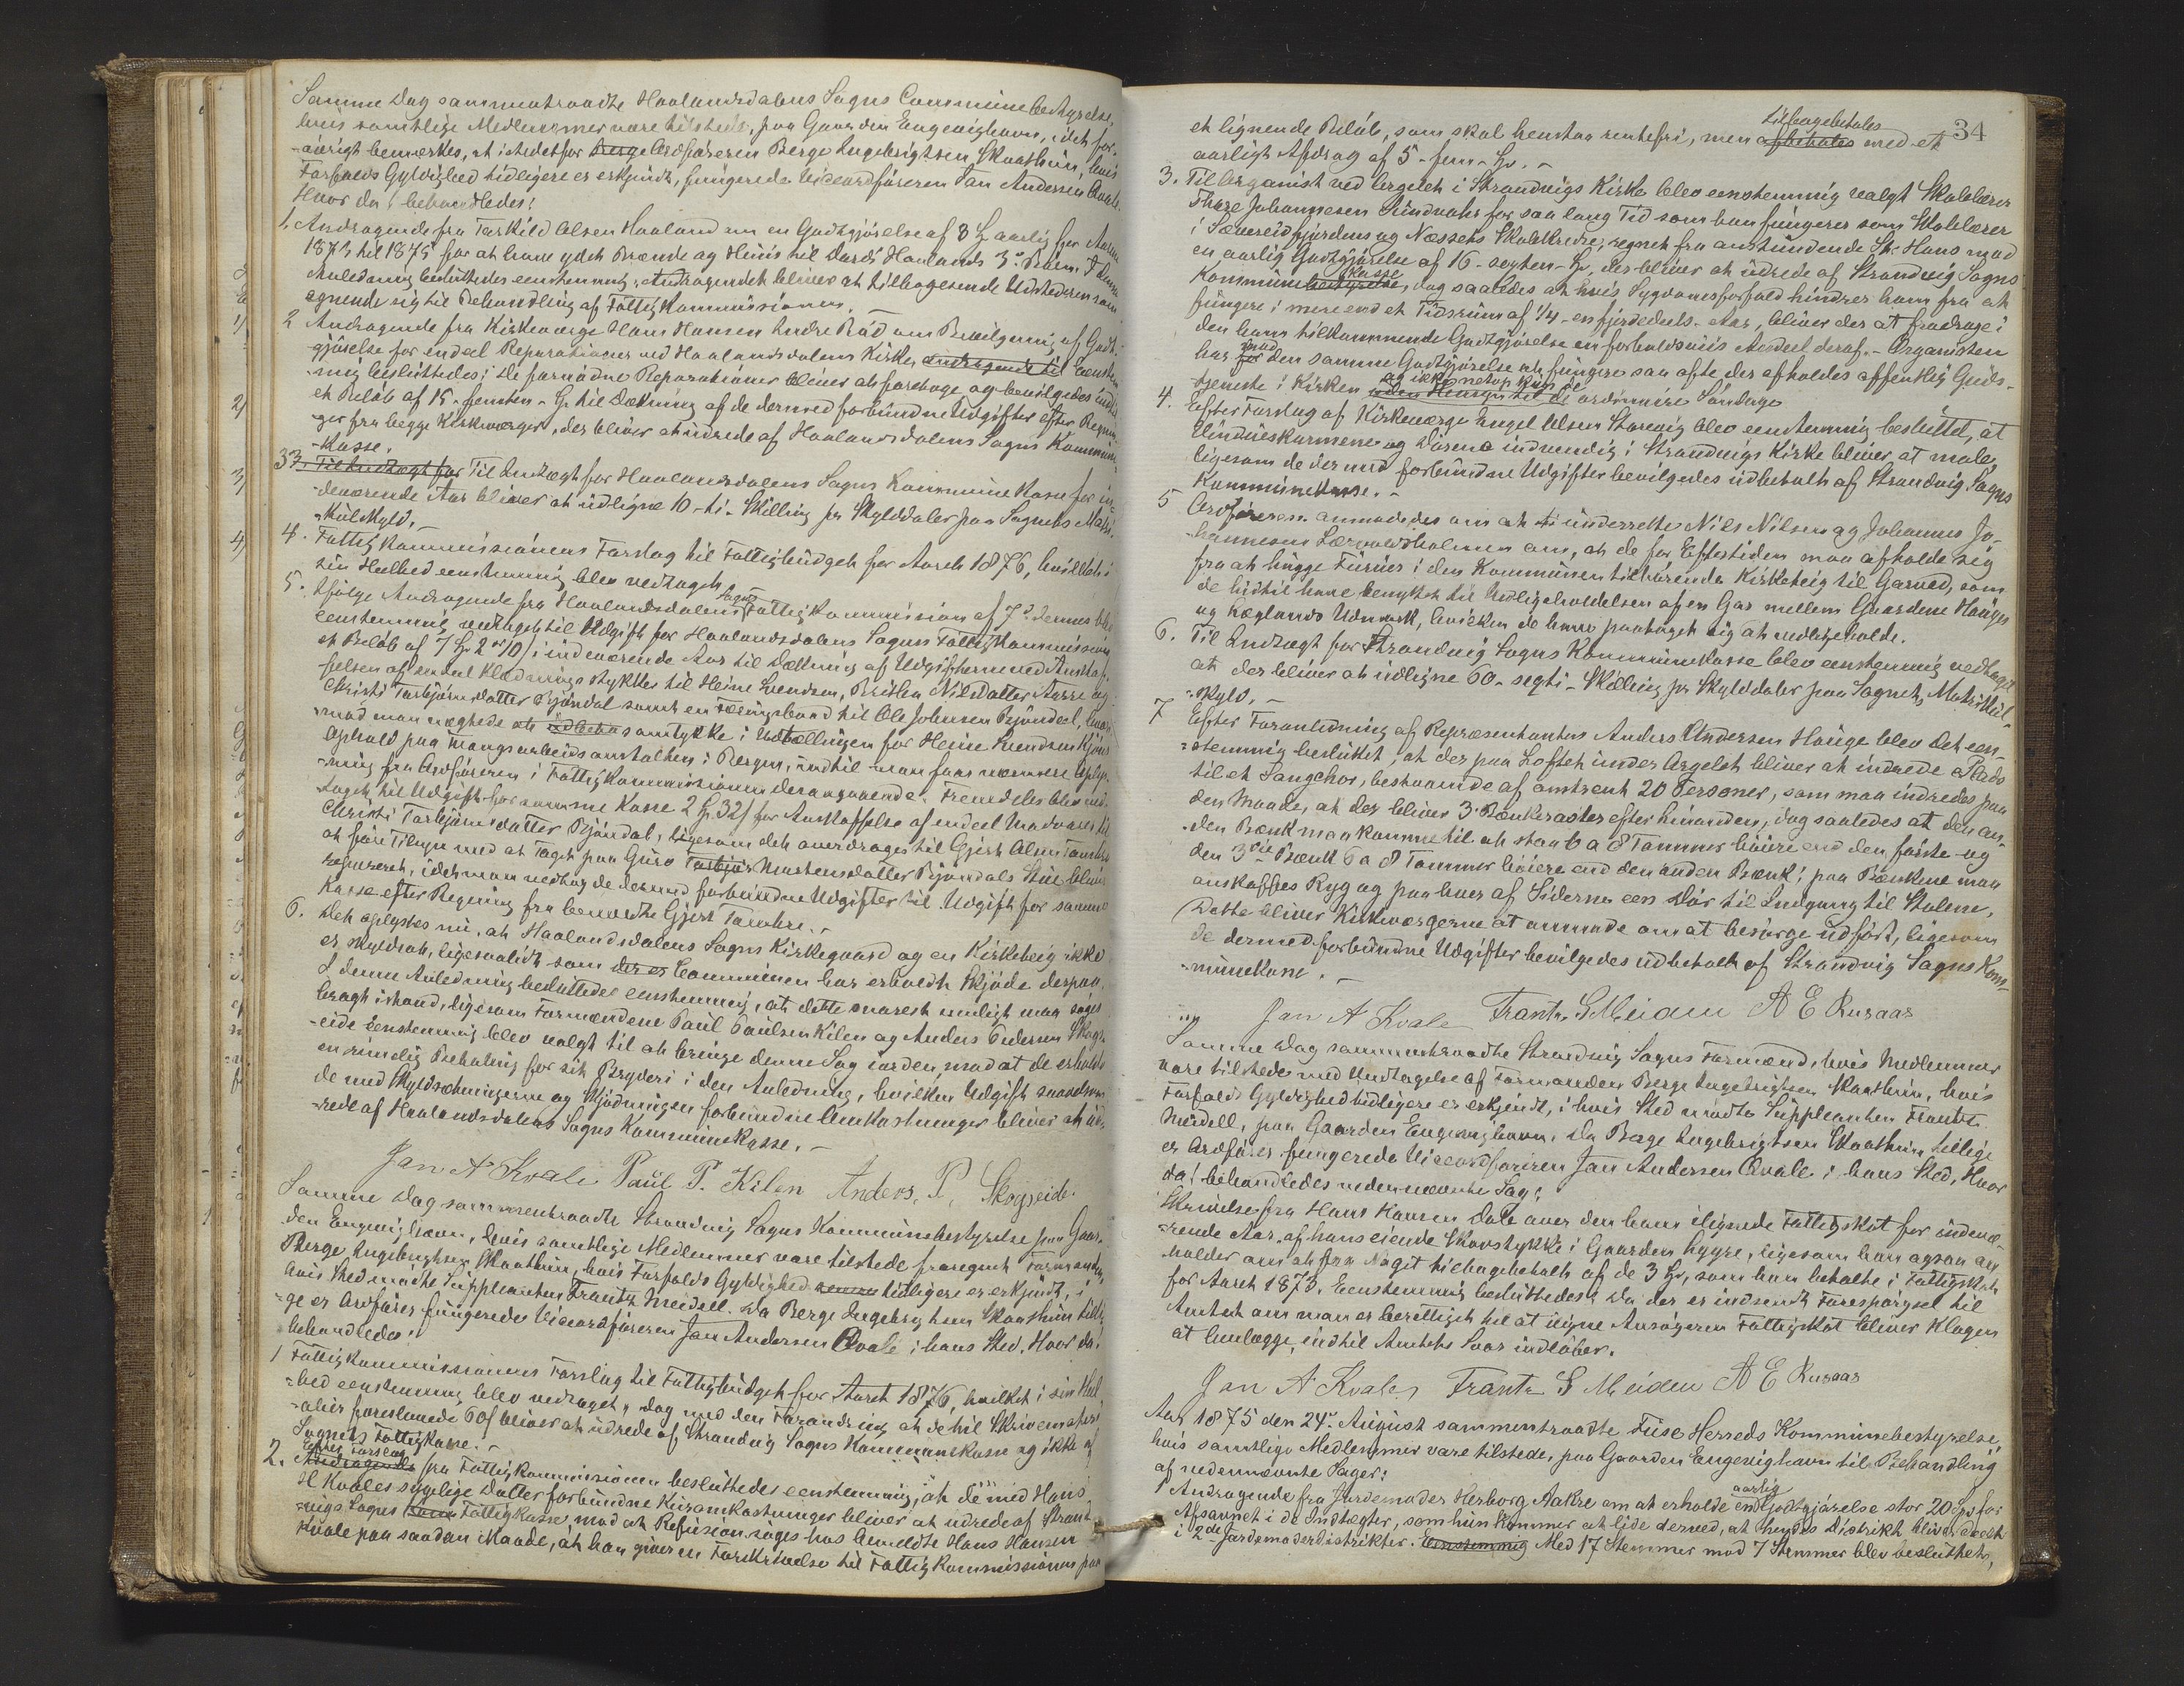 Samme Dag sammentraadte Haalandsdalens Sogns Communebestyrelse,
hvis samtlige Medlemmer vare tilstede, paa Gaarden Engevighavn, idet for-
-øvrigt bemærkes, at istedetfor Berge Ordføreren Berge Ingebrigtsen Skaathun, hvis
Forfalds Gyldighed tidligere er erkjendt, fungerede Viceordføreren Jan Andersen Qvale.
Hvor da! behandledes:
1. Andragende fra Tarkild Olsen Haaland om en Godtgjørelse af 3 Sp aarlig for Aarene
1873 til 1875 for at have ydet Brænde og Huus til Lards Haalands 3de Børn. I denne
Anledning besluttedes eenstemmig: Andragendet bliver at tilbagesende Udstederen som
egnende sig til Behandling af Fattigkommissionen.
2 Andragende fra Kirkeværge Hans Hansen Indre Bød om Bevilgning af Godt-
gjørelse for endeel Reparationer ved Haalandsdalens Kirke, andragende til Eenstem-
mig besluttedes: De fornødne Reparationer bliver at foretage og bevilgedes indtil
et Beløb af 15 - femten - Sp til Dækning af de dermed forbundne Udgifter efter Regnin-
ger fra begge Kirkeværger, der bliver at udrede af Haalandsdalens Sogns Kommune-
-kasse.
33. Til Indtægt for Til Indtægt for Haalandsdalens Sogns Kommunekasse for in-
deværende Aar bliver at udligne 10 - ti - Skilling pr Skylddaler paa Sognets Matri-
-kulskyld. -
4. Fattigkommissionens Forslag til Fattigbudget for Aaret 1876, hvilket i
sin Heelhed eenstemmig blev vedtaget.
5. Ifølge Andragende fra Haalandsdalens Sogns Fattigkommission af 7de dennes blev
eenstemmig vedtaget til Udgift for Haalandsdalens Sogns Fattigkommission
et Beløb af 7 Sp 2 # 10 s i indeværende Aar til Dækning af Udgifterne ved Anskaf-
felsen af endeel Klædningsstykker til Heine Svendsen, Brithe Nilsdatter Aarre og
Christi Torbjørnsdatter Bjøndal samt en Foeringsbond til Ole Johnsen Bjøndal, hvor-
mod man nægtede at udbetale samtykke i Udtællingen for Heine Svendsen Kjøns
Ophold paa Tvangsarbeidsanstalten i Bergen, indtil man faar nærmere Oplys-
-ning fra Ordføreren i Fattigkommissionen derangaaende. Fremdeles blev ved-
taget til Udgift for samme Kasse 2 Sp. 32 s for Anskaffelse af endeel Madvarer til
Christi Torbjørnsdatter Bjøndal, ligesom det overdrages til Gjert Olsen Tombre
at føre Tilsyn med at Taget paa Guro Torbjør Mostensdatter Bjøndals Stue bliver
repareret, idet man vedtog de dermed forbundne Udgifter til Udgift for samme
Kasse efter Regning fra bemeldte Gjert Tombre. -
6. Det oplystes nu, at Haalandsdalens Sogns Kirkegaard og en Kirketeig ikke
er skyldsat, ligesaalidt som der er Communen har erholdt Skjøde derpaa.
I denne Anledning besluttedes eenstemmig, at dette snarest muligt maa søges
bragt istand, ligesom Formændene Paul Paulsen Kilen og Anders Pedersen Skogs-
-eide eenstemmig blev valgt til at bringe denne Sag iorden, mod at de erholde
en rimelig Betaling for sit Bryderi i den Anledning, hvilken Udgift saavelsom
de med Skyldsætningerne og Skjødningen forbundne Omkostninger bliver at ud-
rede af Haalandsdalens Sogns Kommunekasse. -
Jan A Kvale Paul P. Kilen Anders. P. Skogseide.
Samme Dag sammentraadte Strandvig Sogns Kommunebestyrelse paa Gaar-
den Engevighavn, hvis samtlige Medlemmer vare tilstede fraregnet Formanden
Berge Ingebrigtsen Skaathun, hvis Forfalds Gyldighed tidligere er erkjendt, i
hvis Sted mødte Suppleanten Frantz Meidell. Da Berge Ingebrigtsen Skaathun tilli-
-ge er Ordfører fungerede Viceordføreren Jan Andersen Qvale i hans Sted. Hvor da!
behandledes:
1 Fattigkommissionens Forslag til Fattigbudget for Aaret 1876, hvilket i sin Heel-
-hed eenstemmig blev vedtaget, dog med den Forandring, at de til Skrivemateri-
-alier foreslaaede 60 s bliver at udrede af Strandvig Sogns Kommunekasse og ikke af
Sognets Fattigkasse. -
2. Andragende Efter Forslag fra Fattigkommissionen besluttedes eenstemmig, at de med Hans
H Kvales sygelige Datter forbundne Kuromkostninger bliver at udrede af Strand-
-vigs Sogns Fattigkasse mod at Refusion søges hos bemeldte Hans Hansen
Kvale paa saadan Maade, at han giver en Forskrivelse til Fattigkommissionen paa
34
et lignende Beløb, som skal henstaa rentefri, men afbetales tilbagebetales med et
aarligt Afdrag af 5 - fem - Sp. -
3. Til Organist ved Orgelet i Strandvigs Kirke blev eenstemmig valgt Skolelærer
Thore Johannesen Sundvahr for saa lang Tid som han fungerer som Skolelærer
i Sævereidfjordens og Næssets Skolekredse, regnet fra anstundende St. Hans mod
en aarlig Godtgjørelse af 16 - sexten - Sp, der bliver at udrede af Strandvig Sogns
Kommunebestyrelse kasse, dog saaledes at hvis Sygdomsforfald hindrer ham fra at
fungere i mere end et Tidsrum af 1/4 - en fjerdedeels - Aar, bliver der at fradrage i
den ham tilkommende Godtgjørelse en forholdsviis Andeel deraf. - Organisten
har for mod den samme Godtgjørelse at fungere saa ofte der afholdes offentlig Guds-
-tjeneste i Kirken uden Hensyn til de og ikke netop kun de ordinaire Søndage
4. Efter Forslag af Kirkeværge Engel Olsen Storevig blev eenstemmig besluttet, at
Vindueskarmene og Dørene indvendig i Strandvigs Kirke bliver at male,
ligesom de dermed forbundne Udgifter bevilgedes udbetalt af Strandvig Sogns
Kommunekasse. -
5 Ordføreren anmodedes om at underrette Nils Nilsen og Johannes Jo-
hannesen Lærvoldsholmen om, at de for Eftertiden maa afholde sig
fra at hugge Furuer i den Kommunen tilhørende Kirketeig til Garved, som
de hidtil have benyttet til Vedligeholdelsen af en Gar mellem Gaardene Houge
og Koglands Udmark, hvilken de have paataget sig at vedligeholde.
6. Til Indtægt for Strandvig Sogns Kommunekasse blev eenstemmig vedtaget
at der bliver at udligne 60 - segti - Skilling pr Skylddaler paa Sognets Matrikul-
-skyld. -
7 Efter Foranledning af Repræsentanten Anders Andersen Houge blev det een-
-stemmig besluttet, at der paa Loftet under Orgelet bliver at indrede Plads
til et Sangchor, bestaaende af omtrent 20 Personer, som maa indredes paa
den Maade, at der bliver 3 Bænkerader efter hinanden, dog saaledes at den an-
-den Bænk maa komme til at staa 6 a 8 Tommer høiere end den første og
den 3die Bænk 6 a 8 Tommer høiere end den anden Bænk; paa Bænkene maa
anskaffes Ryg og paa hver af Siderne een Dør til Indgang til Stolene.
Dette bliver Kirkeværgerne at anmode om at besørge udført, ligesom
de dermed forbundne Udgifter bevilgedes udbetalt af Strandvig Sogns Kom-
-munekasse. -
Jan A Kvale Frantz S Meidell A E Rusaas
Samme Dag sammentraadte Strandvig Sogns Formænd, hvis Medlemmer
vare tilstede med Undtagelse af Formanden Berge Ingebrigtsen Skaathun, hvis
Forfalds Gyldighed tidligere er erkjendt, i hvis Sted mødte Suppleanten Frantz
Meidell, paa Gaarden Engevighavn. Da Berge Ingebrigtsen Skaathun tillige
er Ordfører fungerede Viceordføreren Jan Andersen Qvale i hans Sted. Hvor
da! behandledes nedennævnte Sag:
Skrivelse fra Hans Hansen Dale over den ham ilignede Fattigskat for indevæ-
-rende Aar, af hans eiende Skovstykke i Gaarden Lygre, ligesom han ogsaa an
holder om at faa Noget tilbagebetalt af de 3 Sp, som han betalte i Fattigskat
for Aaret 1873. Eenstemmig besluttedes: Da der er indsendt Forespørgsel til
Amtet om man er berettiget til at iligne Ansøgeren Fattigskat bliver Klagen
at henlægge, indtil Amtets Svar indløber.
Jan A Kvale Frantz S Meidell A E Rusaas
Aar 1875 den 24de August sammentraadte Fuse Herreds Kommunebestyrelse,
hvis samtlige Medlemmer vare tilstede, paa Gaarden Engevighavn til Behandling
af nedennævnte Sager:
1 Andragende fra Jordemoder Herborg Aakre om at erholde en aarlig Godtgjørelse stor 20 Sp for
Afsavnet i de Indtægter, som hun kommer at lide derved, at hendes Distrikt bliver deelt
i 2de Jordemoderdistrikter. Eenstemmig Med 17 Stemmer mod 7 Stemmer blev besluttet,